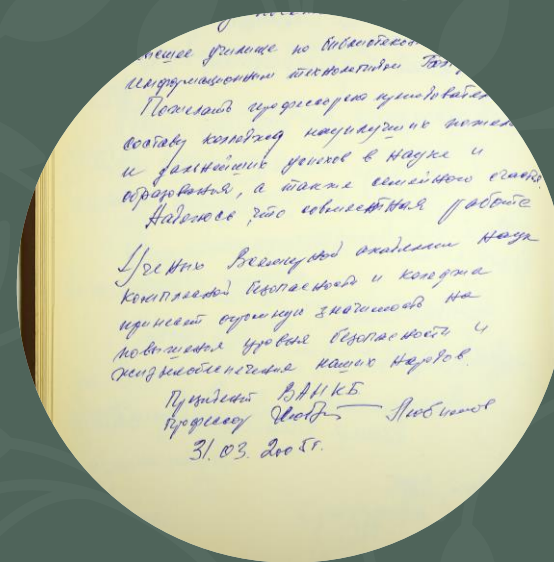 высшее училище по библиотеков
информационным технологиям
Пожелать профессорско преподавател
составу колледжа наилучших пожел
и дальнейших успехов в науке и
образования, а также семейного счастья.
Надеюсь, что совместная работа
Ученых Всемирной академии наук
комплексной безопасности и колледжа
принесет огромную значимость на
повышения уровня безопасности и
жизнеобеспечения наших народов.
Президент ВАНКБ
Профессор Любимов
31.03.2005г.